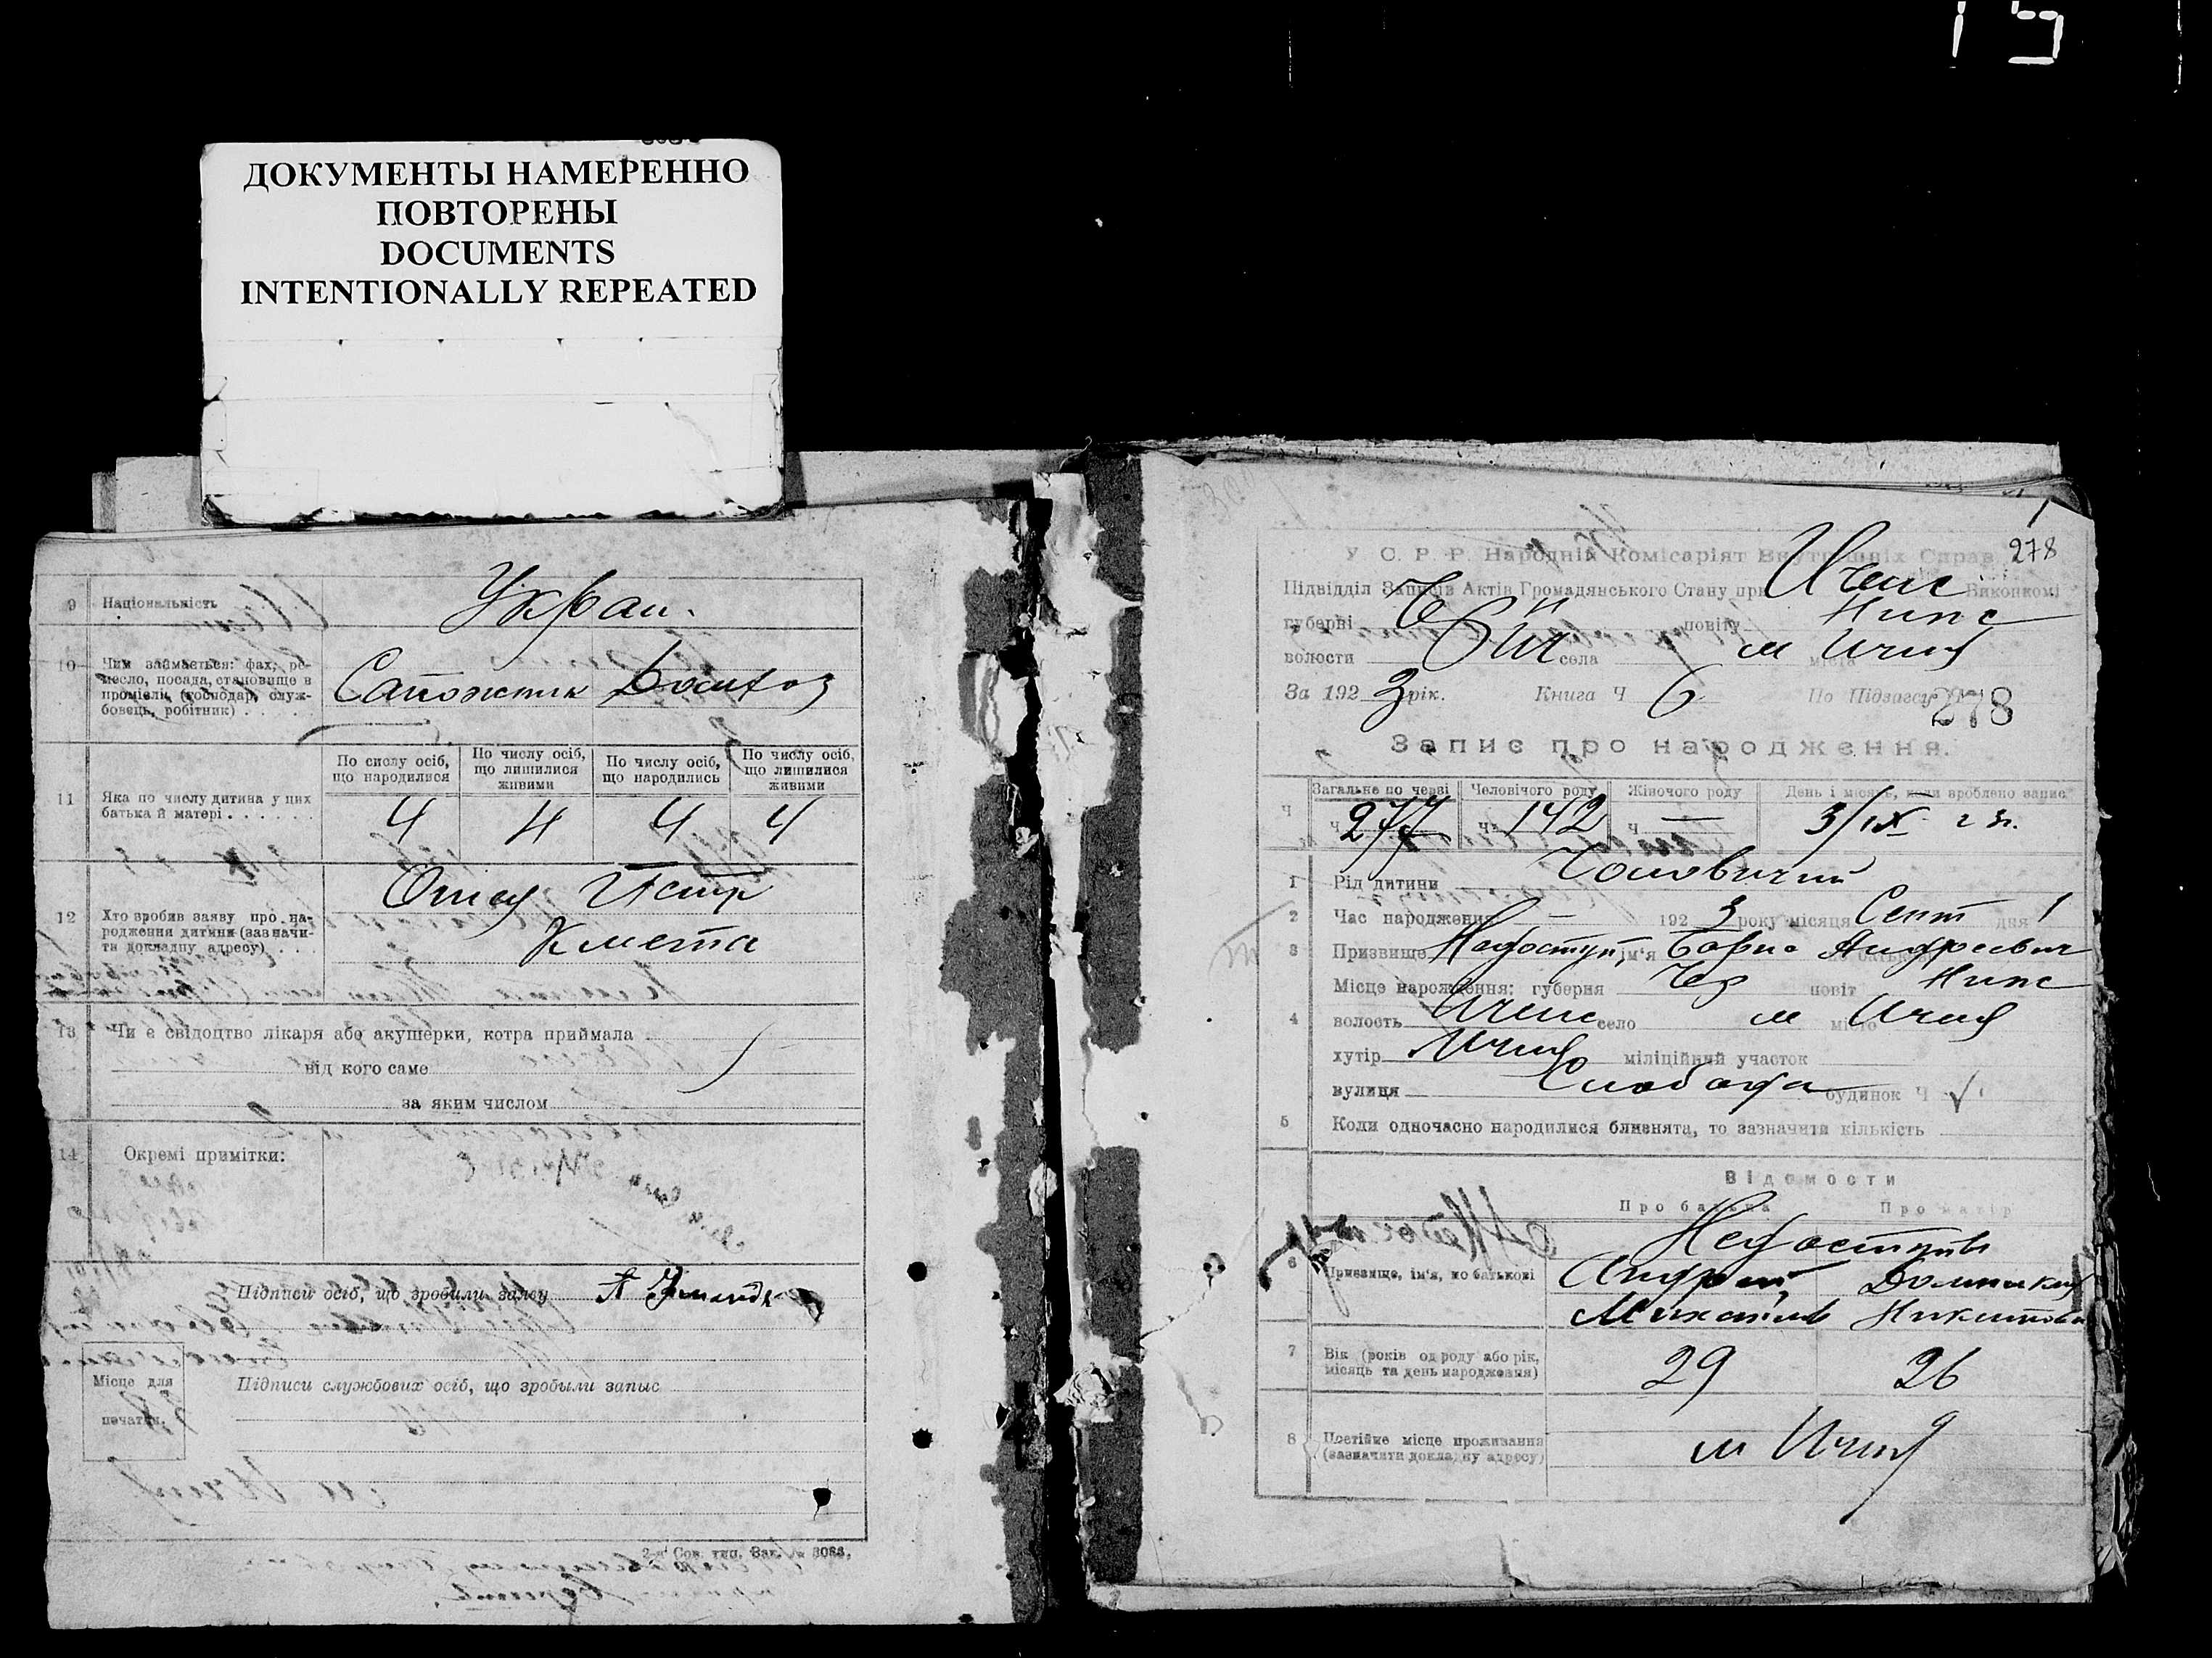 ДОКУМЕНТЫ НАМЕРЕННО
ПОВТОРЕНЫ
DOCUMENTS
INTENTIONALLY REPEATED
9 Національність Украи.
10 Чим займається: фах, ре-
месло, посада, становище в
промислі, (господар, служ-
бовець, робітник) Сапожник Домхоз
По сислу осіб, що народилися
По числу осіб, що лишилися живими
По числу осіб, що народились
По числу осіб, що лишилися живими
11 Яка по числу дитина у цих
батька й матері 4 4 4 4
12 Хто зробив заяву про на-
родження дитини (зазначи-
ти докладну адресу) Отец Петр
Кмета
13 Чи є свідоцтво лікаря або акушерки, котра приймала
від кого саме
за яким числом
14 Окремі примітки:
Підписи осіб, що зробили заяву
Місце для
печатки.
Підписи службових осіб, що зробыли запыс
2-я Сов. тип. Зак. № 3088.
278
У. С. Р. Р. Народній Комісаріят Внутрішніх Справ
Підвідділ Записів Актів Громадянського Стану при Ичен Виконкомі
губерні Чер повіту Нинс
волости села м міста Ичня
За 192 3 рік. Книга Ч 6 По Підзагсу 278
Запис про народження.
Загальне по черві Человічого роду Жіночого роду День і місяць, коли вроблено запис
Ч ч 277 ч 142 ч — 3/IX 23.
1 Рід дитини Чоловичий
2 Час народження — 192 3 року місяця Сент дня 1
3 Призвище Недоступ, ім'я Борис Андреевич
4 Місце народження: губерня Чер повіт Нинс
волость Ичен село м місто Ичня
хутір Ичня міліційний участок
вулиця Слобода будинок Ч
5 Коли одночасно народилися близнята, то зазначити кількість
Відомости
Про батька Про матір
Недоступ
6 Призвище, ім'я, по батькові Андрей Домникия
Михайлов Никитова
7 Вік (років од роду або рік,
місяць та день мародження) 29 26
8 Постійне місце проживання
(зазначити докладну адресу) м Ичня